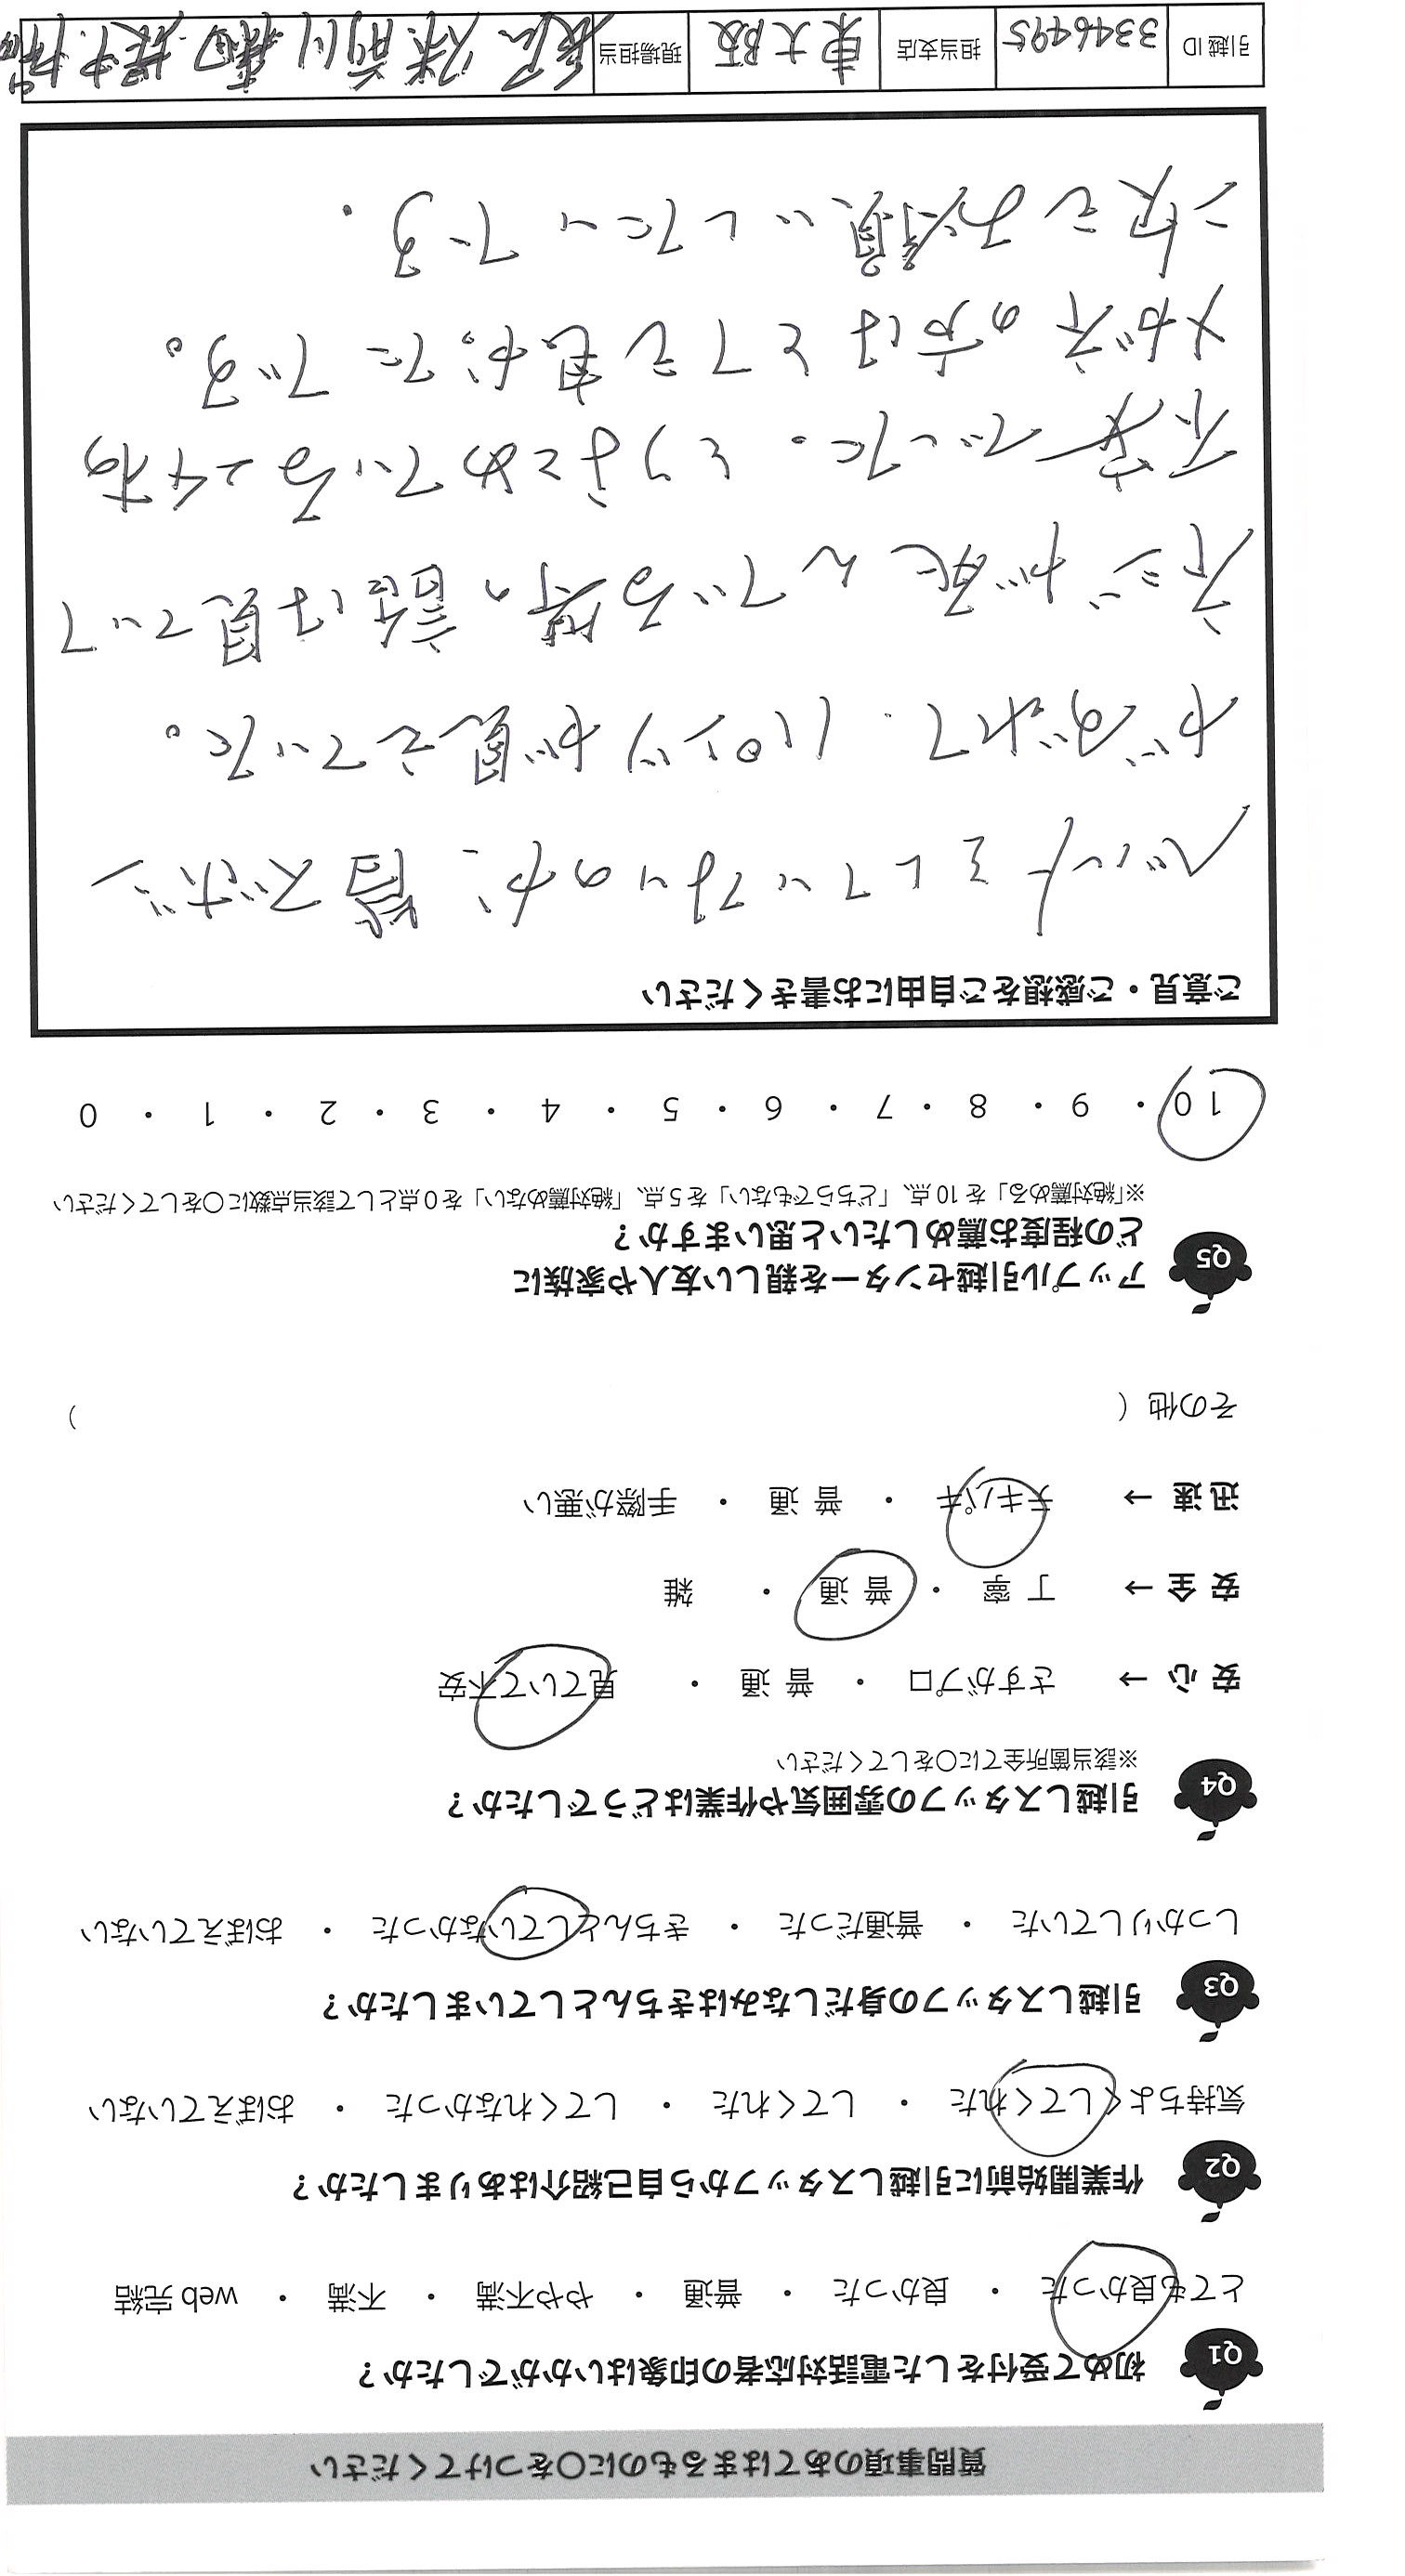 質問事項のあてはまるものに〇をつけてください
Q1 初めて受付をした電話対応者の印象はいかがでしたか？
とても良かった ・ 良かった ・ 普通 ・ やや不満 ・ 不満 ・ web 完結
Q2 作業開始前に引越しスタッフから自己紹介はありましたか？
気持ちよくしてくれた ・ してくれた ・ してくれなかった ・ おぼえていない
Q3 引越しスタッフの身だしなみはきちんとしていましたか？
しっかりしていた ・ 普通だった ・ きちんとしていなかった ・ おぼえていない
Q4 引越しスタッフの雰囲気や作業はどうでしたか？
※該当箇所全てに〇をしてください
安 心 → さすがプロ ・ 普 通 ・ 見ていて不安
安 全 → 丁 寧 ・ 普 通 ・ 雑
迅 速 → テキパキ ・ 普 通 ・ 手際が悪い
その他（ ）
Q5 アップル引越センターを親しい友人や家族に
どの程度お薦めしたいと思いますか？
※「絶対薦める」を 10 点、「どちらでもない」を 5 点、「絶対薦めない」を 0 点として該当点数に〇をしてください
10 ・ 9 ・ 8 ・ 7 ・ 6 ・ 5 ・ 4 ・ 3 ・ 2 ・ 1 ・ 0
ご意見・ご感想をご自由にお書きください
ベルトをしていないのか、皆ズボン
がずれて、パンツが見えていた。
方が死んでる時の 話は見ていて
不安でした。とりまとめている
メガネの方はとても良かったです。
次もお願いしたいです.
引越 ID 3346495 担当支店 東大阪 現場担当